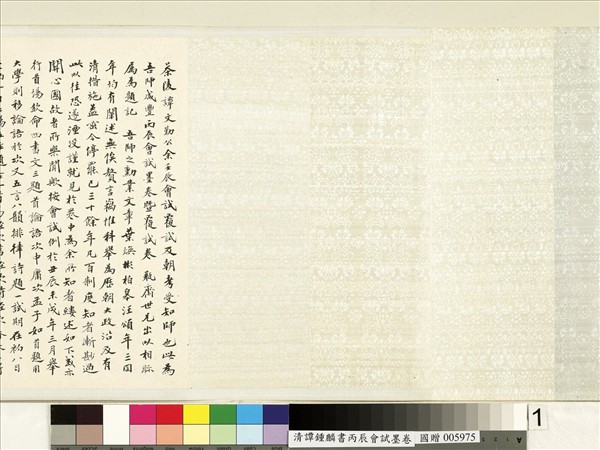 茶陵譚文勤公余壬辰會試覆試及朝考受知師也此為
吾師咸豐丙辰會試墨卷暨覆試卷 瓶齋世兄出以相眎
屬為題記 吾師之勳業文章葉煥彬柏皋汪頌年三同
年均有闡述無俟贅言竊惟科舉為歷朝大政洎及有
清措施益宏今停罷已三十餘年凡百制度知者漸尟過
此以往恐遂湮沒謹就見於卷中為余所知者縷述如下或亦
關心國故者所樂聞歟按會試例於丑辰未戌年三月舉
行首場欽命四書文三題首論語次中庸次孟子如首題用
大學則移論語於次又五言八韻排律詩題一試期在初八日
清譚鍾麟書丙辰會試墨卷 國贈 005975
1